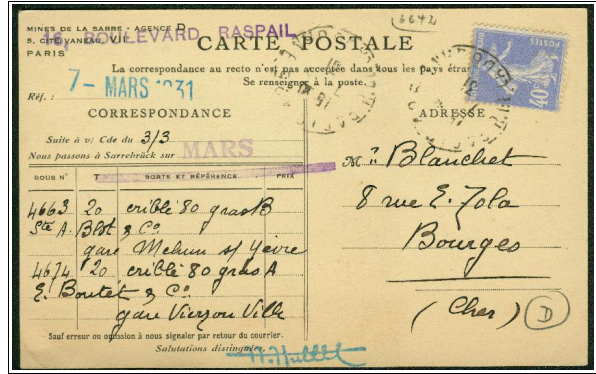 6642
MINES DE LA SARRE - AGENCE D
16, BOULEVARD RASPAIL
5, CITÉ VANEAU, VII
PARIS
CARTE POSTALE
La correspondance au recto n'est pas acceptée dans tous les pays étran
Se renseigner à la poste.
7- MARS 1931
Réf. :
CORRESPONDANCE
ADRESSE
POSTES
40c
Suite à v/ Cde du 3/3
Nous passons à Sarrebrück sur MARS
SOUS N° T SORTE ET RÉFÉRENCE PRIX
4663 20 criblé 80 gras B
Sté A. Blot & Co
gare Mehun s/ Yèvre
4674 20 criblé 80 gras A
E. Boutet & Co
gare Vierzon Ville
Sauf erreur ou omission à nous signaler par retour du courrier.
Salutations distinguées,
M. Blanchet
8 rue E. Zola
Bourges
(Cher)
D